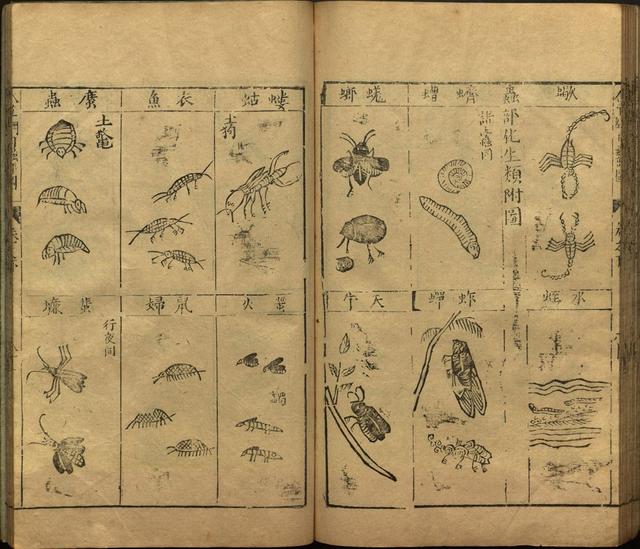 蠍
蟲部化生類附圖
蠐螬
諸蠹同
蜣蜋
水蛭
蚱蟬
天牛
螻蛄
土狗
衣魚
䗪蟲
土鼈
螢火
鼠婦
蜚蠊
行夜同